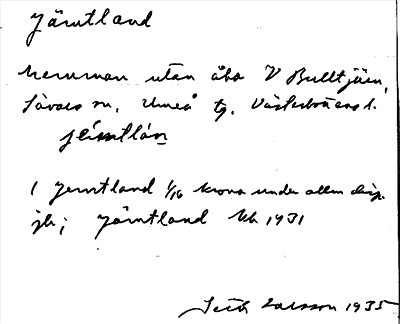 Jämtland
hemman utan åbo V Bulltjärn,
Sävars sn, Umeå tg. Västerbottens l.
jämtlan
1 Jemtland 1/16 krono under allm disp.
jb; Jämtland kb 1931
Larsson 1935